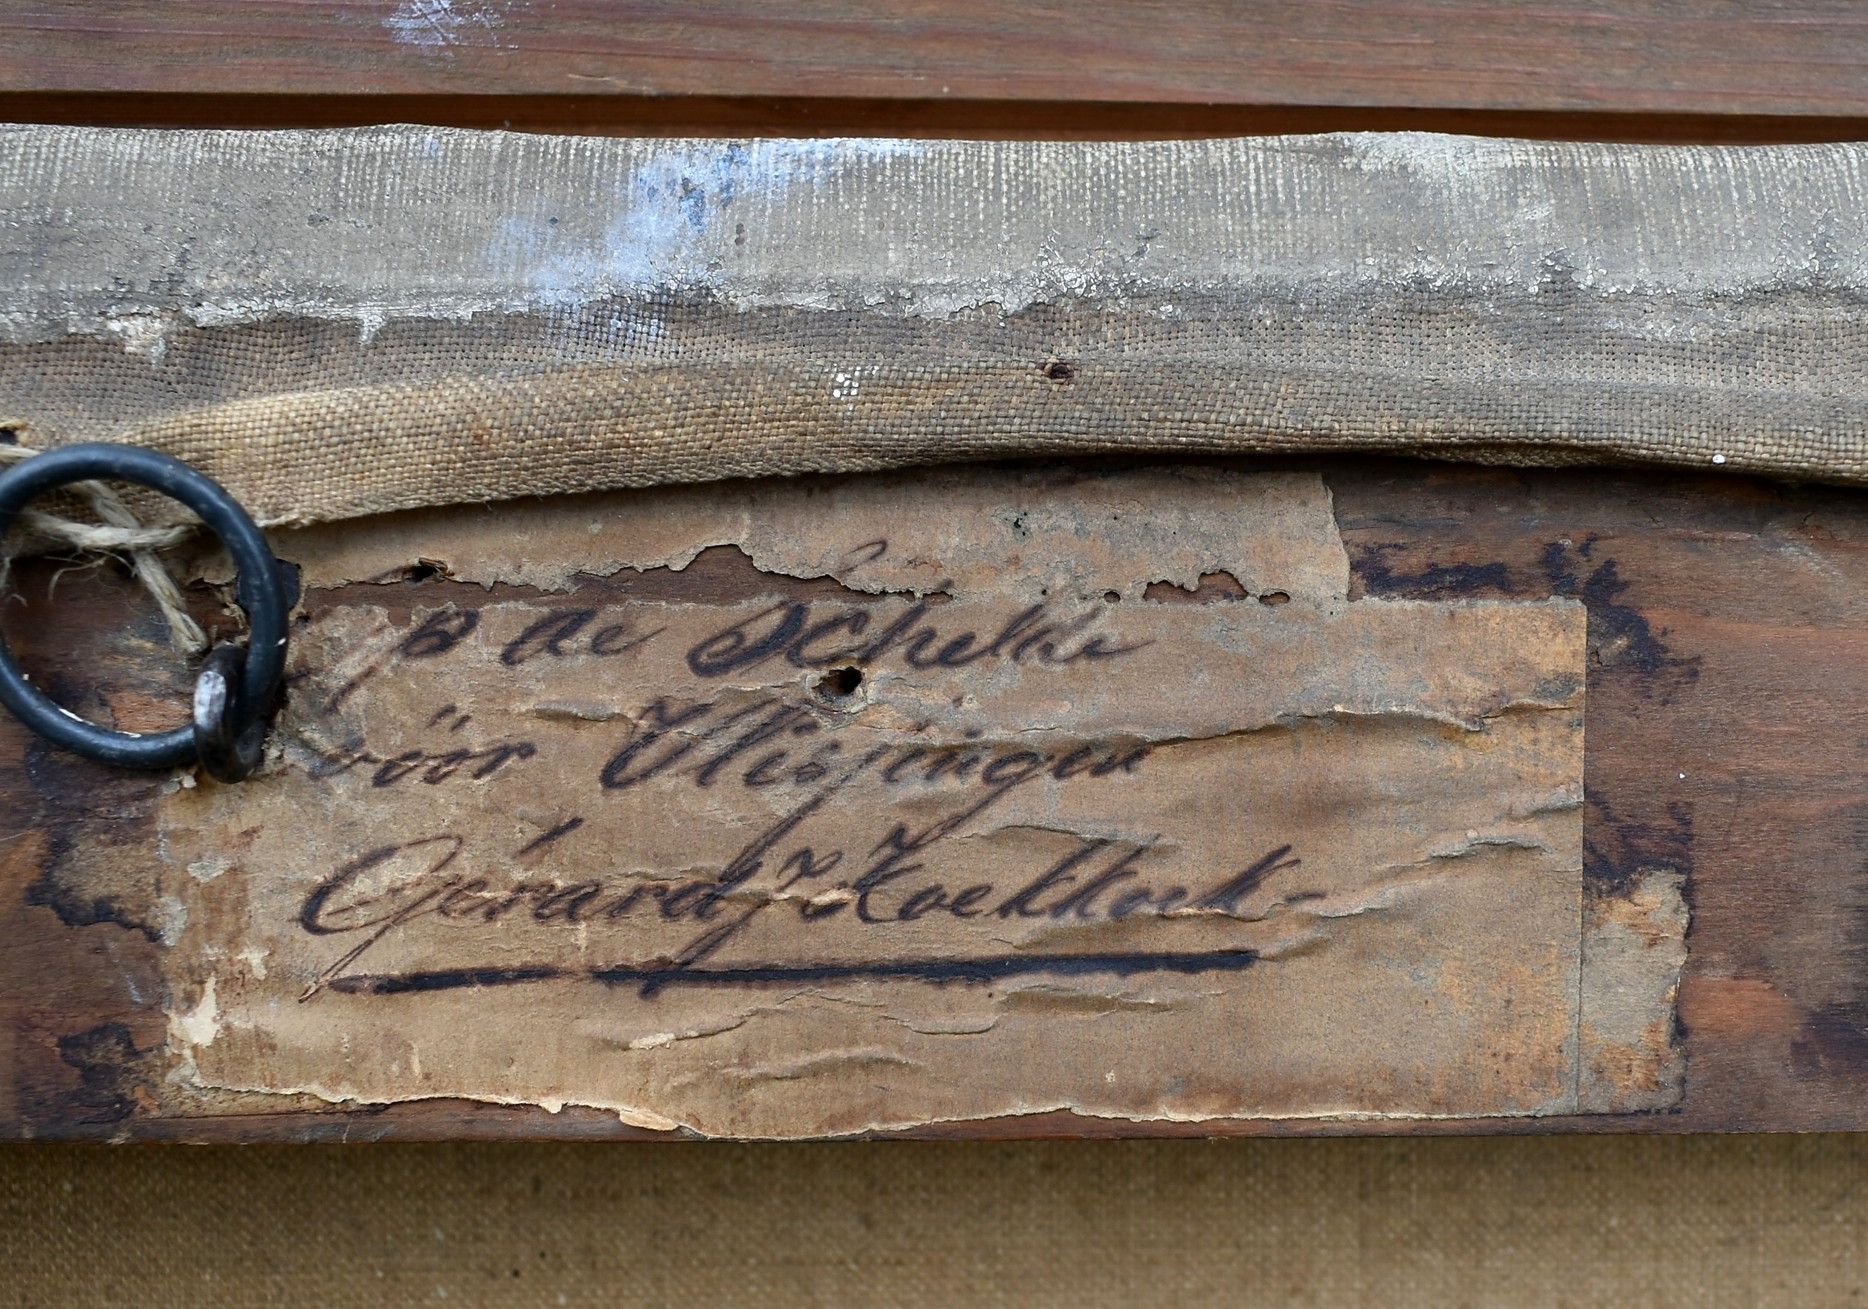 Op de Schelde
vöör Vlissingen
Gérard J Koekkoek-